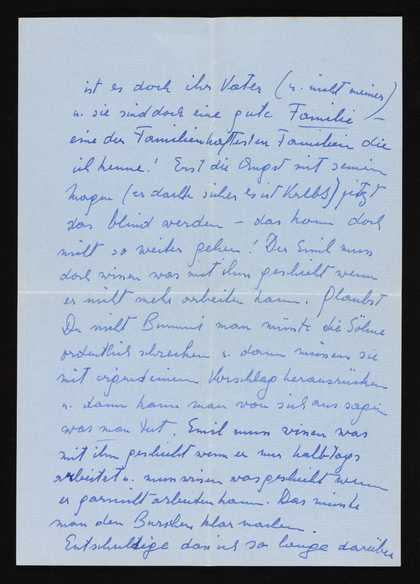 ist es doch ihr Vater (u. nicht meiner)
u. sie sind doch eine gute Familie –
eine der Familienhaftesten Familien die
ich kenne! Erst die Angst mit seinem
Magen (er dachte sicher es ist Krebs) jetzt
das blind werden – das kann doch
nicht so weiter gehen! Der Emil muss
doch wissen was mit ihm geschieht wenn
er nicht mehr arbeiten kann. Glaubst
Du nicht man müsste die Söhne
ordentlich schrecken u. dann müssen sie
mit irgendeinem Vorschlag herausrücken
u. dann kann man von sich aus sagen
was man tut. Emil muss wissen was
mit ihm geschieht wenn er nur halbtags
arbeitet u. muss wissen was geschieht wenn
er garnicht arbeiten kann. Das müsste
man den Burschen klar machen.
Entschuldige dass ich so lange darüber